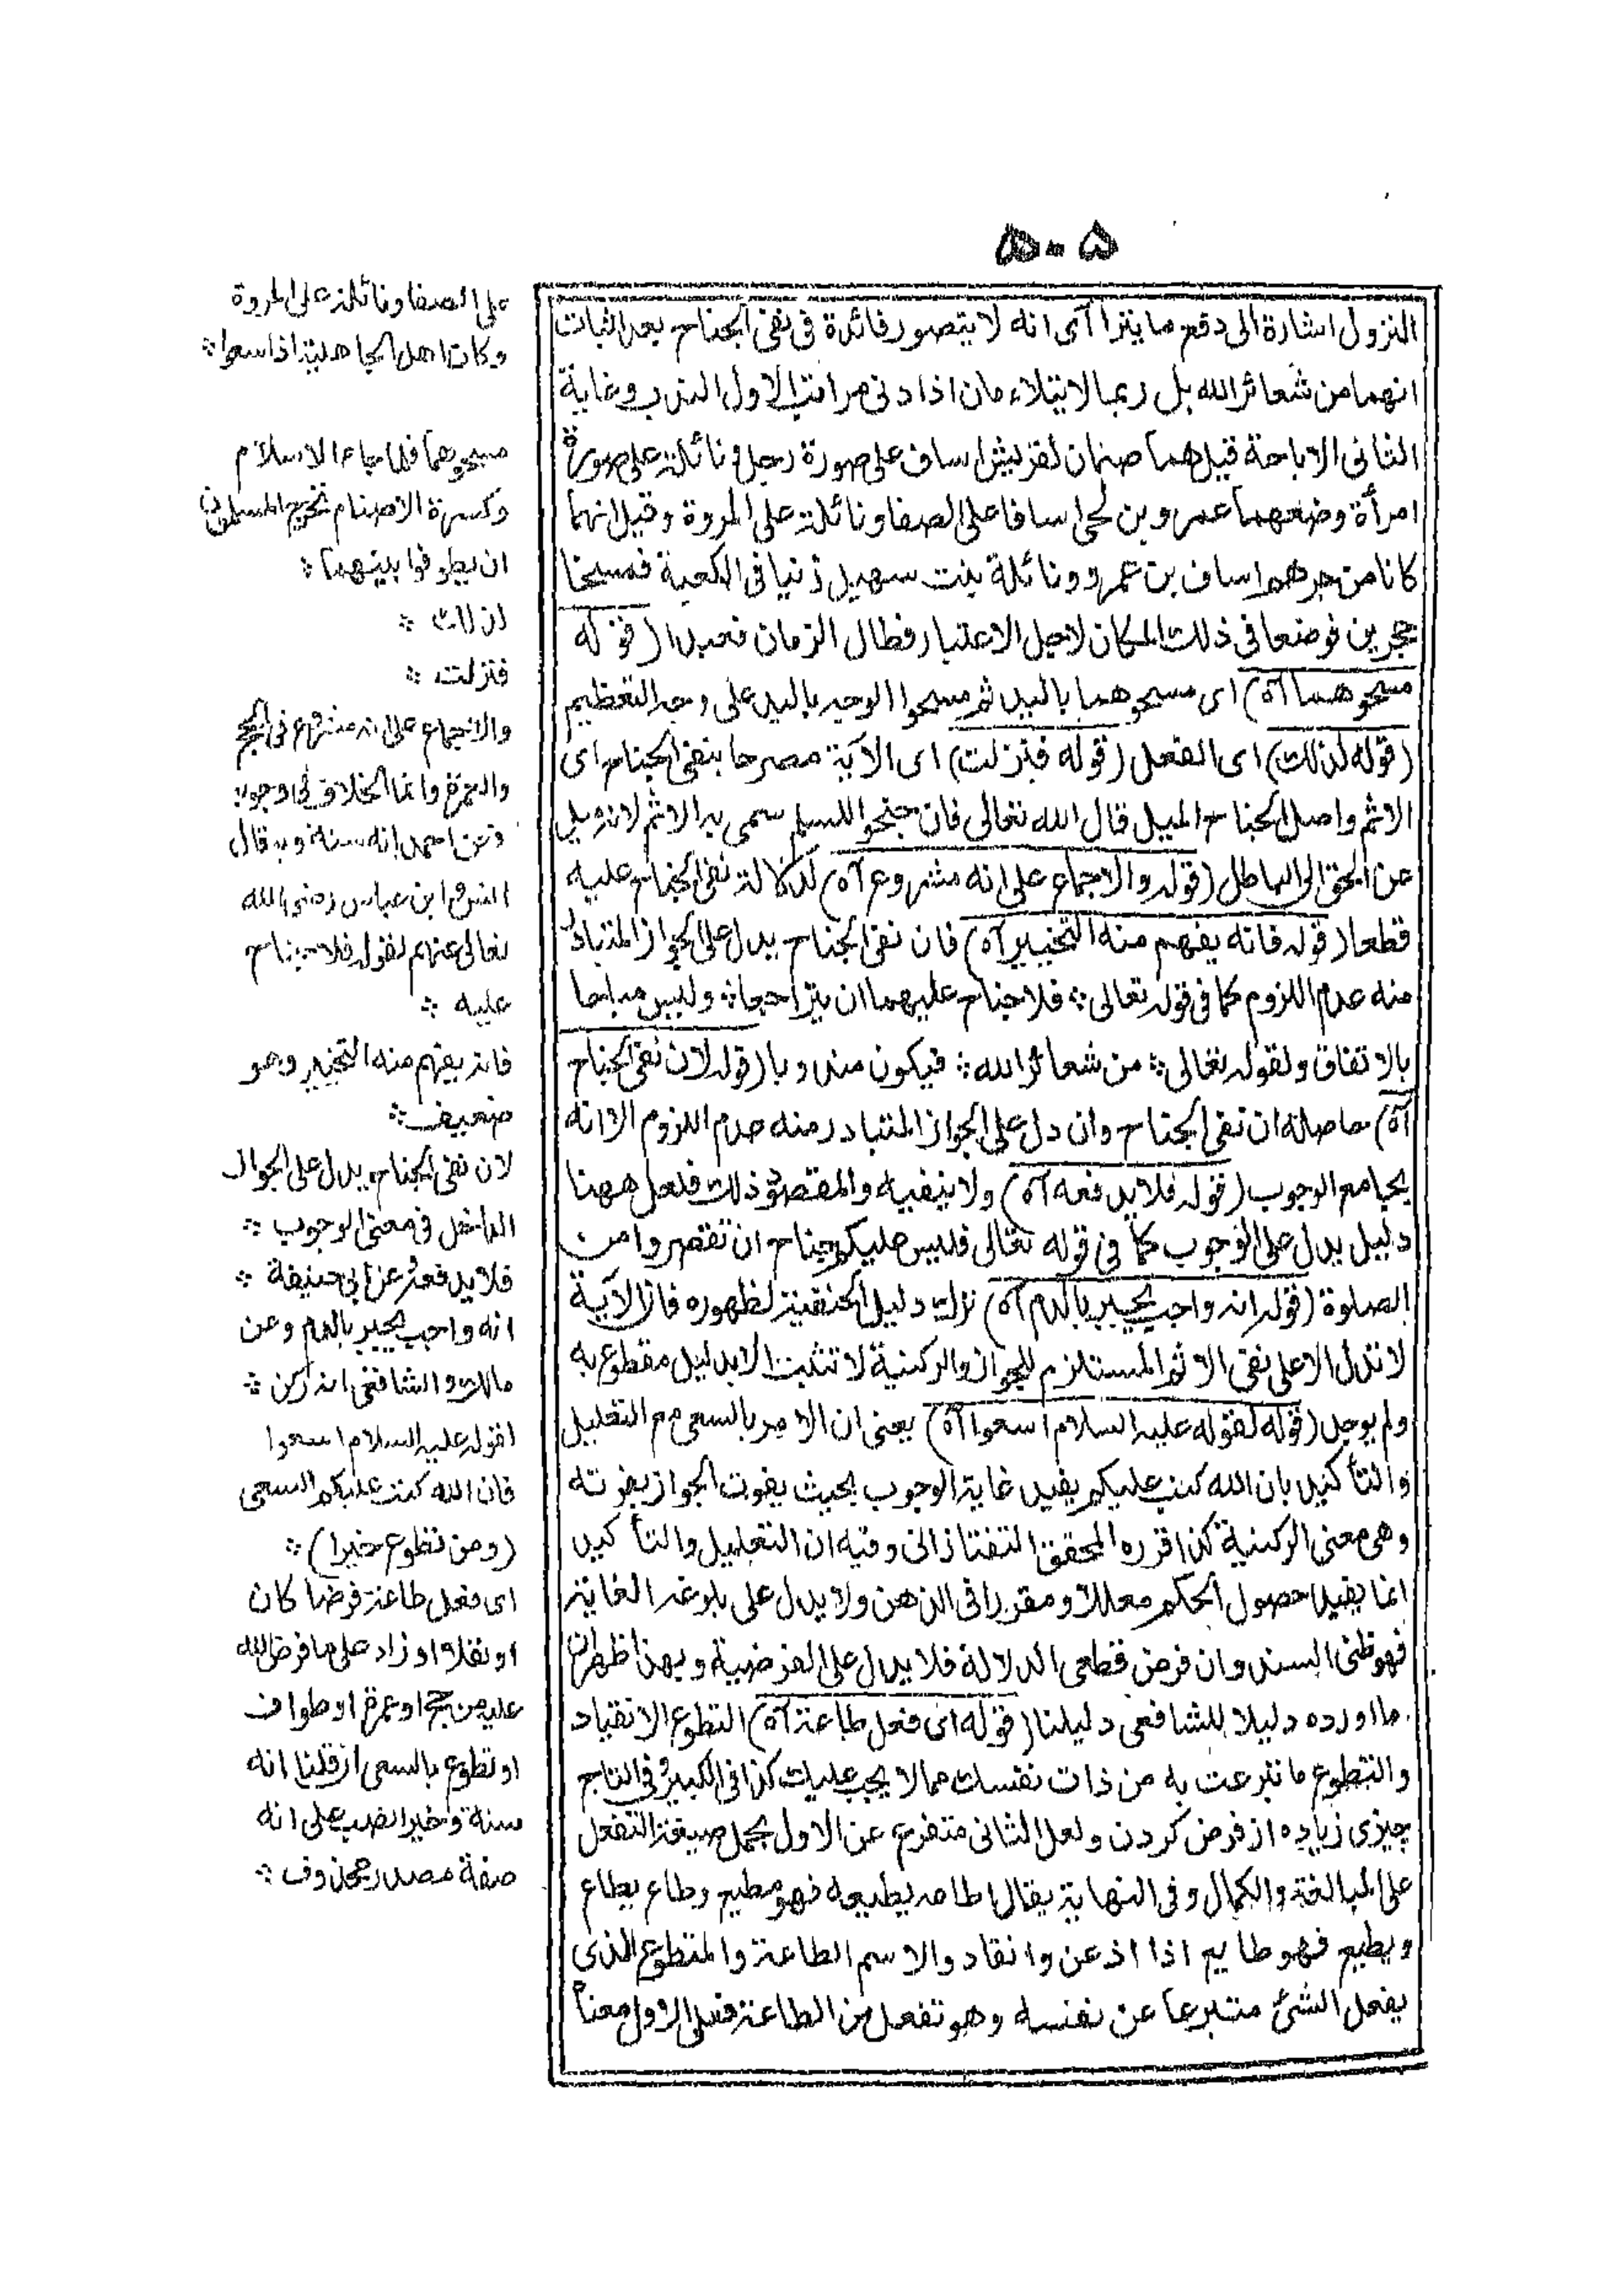 ۵۰۵
النزول اشارة الى دفع ما يترا آى انه لا يتصور فائدة فى نفى الجناح بعد اثبات
انهما من شعائر الله بل ربما لا يتلاءمان اذ ادنى مراتب الاول الندب وغاية
الثانى الاباحة قيل هما صنمان لقريش اساف على صورة رجل ونائلة على صورة
امرأة وضعهما عمرو بن لحى اسافا على الصفا ونائلة على المروة وقيل انهما
كانا من جرهم اساف بن عمرو ونائلة بنت سهيل زنيا فى الكعبة فمسخا
حجرين فوضعا فى ذلك المكان لاجل الاعتبار فطال الزمان فعبدا (قوله
مسحوهما آه) اى مسحوهما باليد ثم مسحوا الوجه باليد على وجه التعظيم
(قوله لذلك) اى الفعل (قوله فنزلت) اى الآية مصرحا بنفى الجناح اى
الاثم واصل الجناح الميل قال الله تعالى فان جنحوا للسلم سمى به الاثم لانه ميل
عن الحق الى الباطل (قوله والاجماع على انه مشروع آه) لدلالة نفى الجناح عليه
قطعا (قوله فانه يفهم منه التخيير آه) فان نفى الجناح يدل على الجواز المتبادر
منه عدم اللزوم كما فى قوله تعالى؛ فلا جناح عليهما ان يتراجعا؛ وليس مباحا
بالاتفاق ولقوله تعالى؛ من شعائر الله؛ فيكون مندوبا (قوله لان نفى الجناح
آه) حاصله ان نفى الجناح وان دل على الجواز المتبادر منه عدم اللزوم الا انه
يجامع الوجوب (قوله فلا يدفعه آه) ولا ينفيه والمقصود ذلك فلعل ههنا
دليل يدل على الوجوب كما فى قوله تعالى فليس عليكم جناح ان تقصروا من
الصلوة (قوله انه واجب يجبر بالدم آه) ترك دليل الحنفية لظهوره فان الآية
لا تدل الا على نفى الاثم المستلزم للجواز والركنية لا تثبت الا بدليل مقطوع به
ولم يوجد (قوله لقوله عليه السلام اسعوا آه) يعنى ان الامر بالسعى مع التعليل
والتأكيد بان الله كتب عليكم يفيد غاية الوجوب بحيث يفوت الجواز بفوته
وهى معنى الركنية كذا قرره المحقق التفتازانى وفيه ان التعليل والتأكيد
انما يفيد حصول الحكم معللا ومقررا فى الذهن ولا يدل على بلوغه الغاية
فهو ظنى السند وان فرض قطعى الدلالة فلا يدل على الفرضية وبهذا ظهر ان
ما اورده دليلا للشافعى دليلنا (قوله اى فعل طاعة آه) التطوع الانقياد
والتطوع ما تبرعت به من ذات نفسك مما لا يجب عليك كذا فى الكبير وفى التاج
چيزى زياده از فرض كردن ولعل الثانى متفرع عن الاول بحمل صيغة التفعل
على المبالغة والكمال وفى النهاية يقال اطاعه يطيعه فهو مطيع وطاع يطاع
ويطيع فهو طايع اذا اذعن وانقاد والاسم الطاعة والمتطوع الذى
يفعل الشئ متبرعا عن نفسه وهو تفعل من الطاعة فعلى الاول معناه
على الصفا ونائلة على المروة
وكان اهل الجاهلية اذا سعوا؛
مسحوهما فلما جاء الاسلام
وكسرة الاصنام تحرج المسلمون
ان يطوفوا بينهما؛
لذلك؛
فنزلت؛
والاجماع على انه مشروع فى الحج
والعمرة وانما الخلاف فى وجوبه
وعن احمد انه سنة وبه قال
انس وابن عباس رضى الله
تعالى عنهم لقوله فلا جناح
عليه؛
فانه يفهم منه التخيير وهو
ضعيف؛
لان نفى الجناح يدل على الجواز
الداخل فى معنى الوجوب؛
فلا يدفعه وعن ابى حنيفة؛
انه واجب يجبر بالدم وعن
مالك والشافعى انه ركن؛
لقوله عليه السلام اسعوا
فان الله كتب عليكم السعى
(ومن تطوع خيرا)؛
اى فعل طاعة فرضا كان
او نفلا او زاد على ما فرض الله
عليه من حج او عمرة او طواف
او تطوع بالسعى ان قلنا انه
سنة وخيرا نصب على انه
صفة مصدر محذوف؛